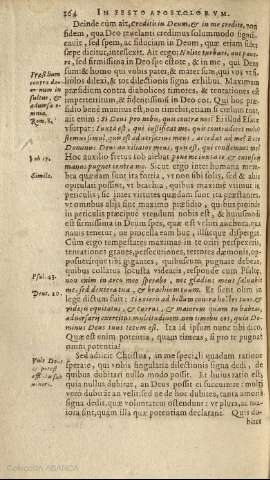 364 IN FESTO APOSTOLORVM.
Deinde cùm ait, Creditis in Deum, & in me credite, non
fidem, qua Deo tracta solummodo signi-
ficauit, sed spem, ac fiduciam in Deum, quæ etiam fides
sæpe dicitur, intellexit. Ait ergo: Nolite turbari, aut paue-
re, sed firmissima in Deo spe estote, & in me, qui Deus
sum & homo qui vobis pater, & mater sum, qui vos vsque
dilexi, & tot dilectionis signa exhibui. Maximum
præsidium contra diabolicos timores, & tentationes est
impertentium, & fidentissimû in Deo cor. Qui hoc præ-
sidio bene munitus est, non timebit, etiam si
ait enim: Si Deus pro nobis, quis contra nos? Et illud Esaiæ
vsurpat: Iuxta est, qui iustificat me, quis contradicet mihi?
stemus simul, quis est aduersarius meus? accedat ad me? Ecce
Dominus Deus auxiliator meus, quis est, qui condemnet me?
Hoc auxilio fretus Iob aiebat: pone me iuxta te, & cuiusuis
manus pugnet contra me. Sicut ergo inter humana mem-
bra quædam sunt ita fortia, vt non sibi solis, sed & aliis
opitulari possint, vt brachia, quibus maximè vtimur in
periculis, sic inter virtutes quædam sunt ita præstantes,
vt omnibus aliis sint maximo præsidio, quibus proinde
in periculis præcipuè vtendum nobis est, & huiusmodi
est firmissima in Deum spes, quæ est velut anchora, quæ
nauis tenetur, ne procella eam huc, illucque dispergat.
Cùm ergo tempestates maximas in te oriri perspexeris,
tentationes graues, persecutiones, terrores dæmonis, op-
positosque tibi gigantes, quibuscum pugnare debeas,
quibus collatus locusta videaris, responde cum Psalte,
non enim in arcu meo sperabo, nec gladius meus saluabit
me, sed dextera tua, & brachium tuum. Et sicut olim in
lege dictum fuit: Si exieris ad bellum contra hostes tuos, &
videris equitatus, & currus, & maiorem quàm tu habeas,
aduersarij exercitus multitudinem, non timebis eos, quia Do-
minus Deus tuus tecum est. Ita id ipsum nunc tibi dico.
Quæ est enim potentia, quam timeas, si pro te pugnat
omnipotentia?
Sed adiicit Christus, in me speciali quadam ratione
sperate, qui vobis singularia dilectionis signa dedi, de
quibus dubitari nullo modo possit. Et huius ratio est,
quia nullus dubitat, an Deus possit ei succurrere: multi
verò dubitât an velit: sed ne de hoc dubites, tanta amoris
signa dedit, quæ voluntatem ostendunt: vt plura, ac ma-
iora sint, quàm illa quæ potentiam declarant. Quis du-
bitet
Præsidium
contra dæ-
monum in-
sultus, &
aduersa ti-
menda.
Rom. 8.
Iob 17.
Simile.
Psal. 43.
Deut. 20.
Colección ABANCA